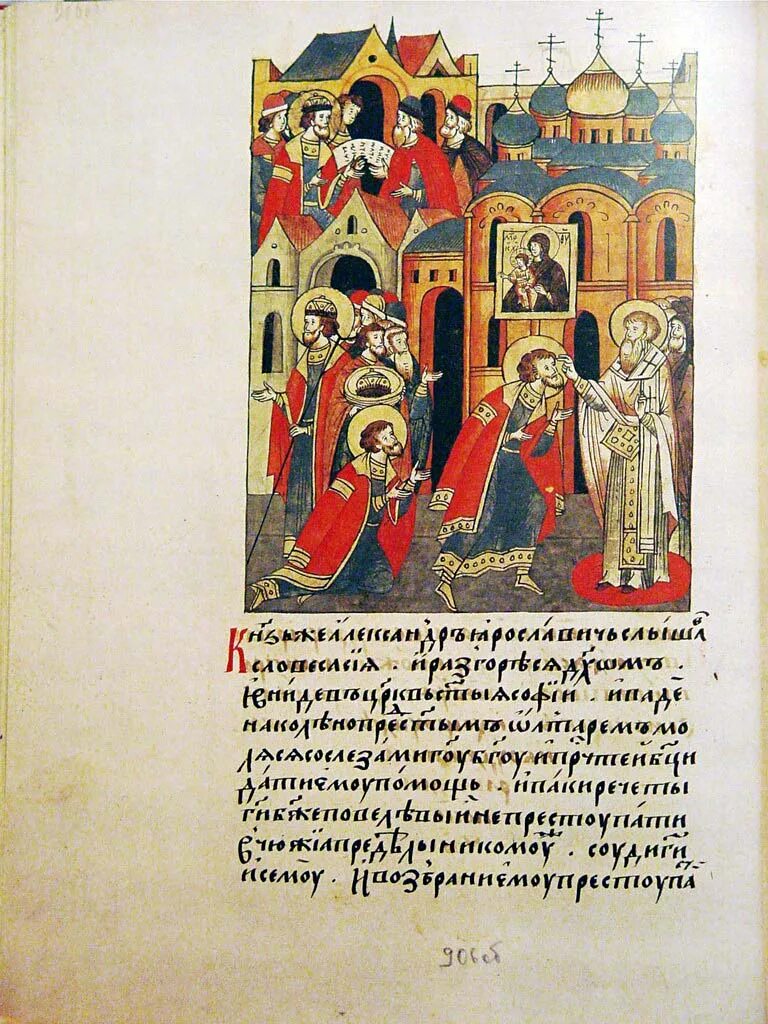 Кнѧзь же алеѯандръ ꙗрославичь слышав
словеса сиꙗ . и разгорѣсѧ дꙋхомъ .
и вниде въ црквь ст҃ыѧ софїи . и паде
на колѣно прест҃ымъ ѡлтаремъ мо
лѧсѧ со слезами гоу бгоу и прчтѣй бцы
дати емоу помощь . и паки рече ты
ги бже повелѣвый не престоупати
в чюжїа предѣлы никомоу . соуди ги
и семоу . и возбрани емоу престоупа
906об